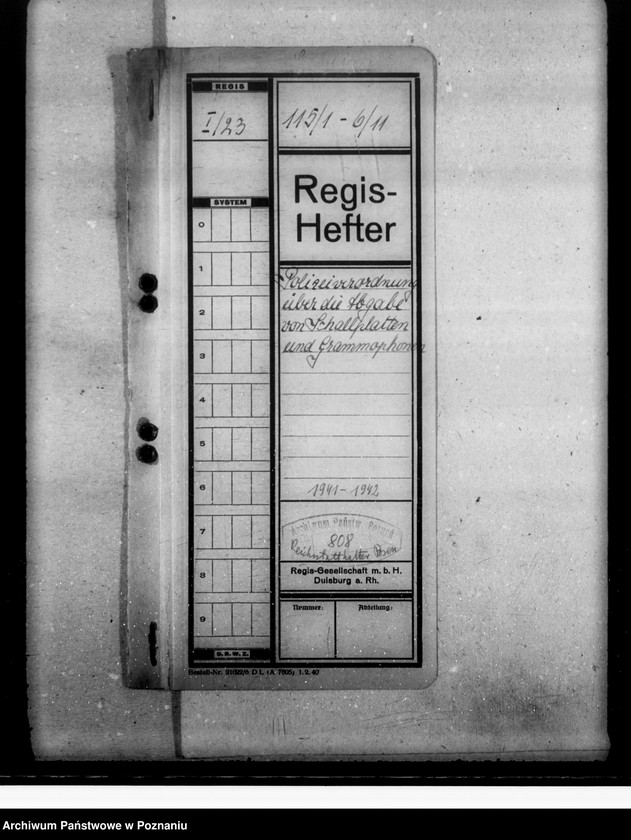 REGIS
I/23
115/1 - 6/11
Regis-
Hefter
SYSTEM
0
1
2
3
4
5
6
7
8
9
Polizeiverordnung
über die Abgabe
von Schallplatten
und Grammophonen
1941 - 1942
Archiwum Państw. Poznań
808
Reichsstatthalter Posen
Regis-Gesellschaft m. b. H.
Duisburg a. Rh.
Nummer:
Abteilung:
D. R. W. Z.
Bestell-Nr.
1. 2. 40
Archiwum Państwowe w Poznaniu